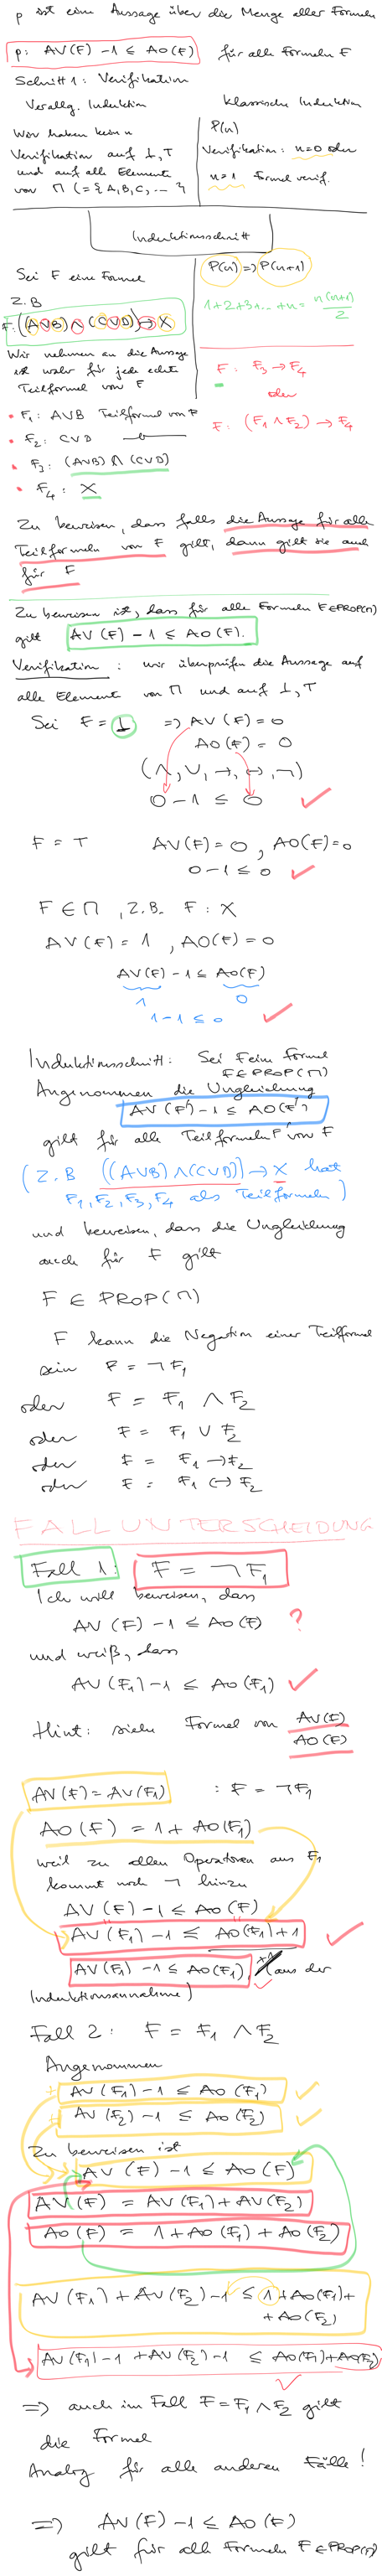 p ist eine Aussage über die Menge aller Formeln
p: AV(F) -1 ≤ AO(F) für alle Formeln F
Schritt 1: Verifikation
Verallg. Induktion
Wir haben kein n
Verifikation auf ⊥, T
und auf alle Elemente
von Π (= {A, B, C, ... }
Klassische Induktion
P(n)
Verifikation: n=0 oder
n=1 Formel verif.
Induktionsschritt
Sei F eine Formel
Z.B
F: ((A∨B) ∧ (C∨D)) → X
Wir nehmen an die Aussage
ist wahr für jede echte
Teilformel von F
• F₁: A∨B Teilformel von F
• F₂: C∨D
• F₃: (A∨B) ∧ (C∨D)
• F₄: X
P(n) => P(n+1)
1+2+3+...+n = n(n+1)/2
F: F₃ → F₄
oder
F: (F₁ ∧ F₂) → F₄
Zu beweisen, dass falls die Aussage für alle
Teilformeln von F gilt, dann gilt sie auch
für F
Zu beweisen ist, dass für alle Formeln F∈PROP(Π)
gilt AV(F) -1 ≤ AO(F).
Verifikation: wir überprüfen die Aussage auf
alle Element von Π und auf ⊥, T
Sei F = ⊥ => AV(F) = 0
AO(F) = 0
(∧, ∨, →, ↔, ¬)
0 -1 ≤ 0 ✓
F = T AV(F) = 0, AO(F)=0
0 -1 ≤ 0 ✓
F ∈ Π, Z.B. F: X
AV(F) = 1, AO(F) = 0
AV(F) -1 ≤ AO(F)
1 0
1-1 ≤ 0 ✓
Induktionsschritt: Sei F eine Formel
F∈PROP(Π)
Angenommen die Ungleichung
AV(F') -1 ≤ AO(F')
gilt für alle Teilformeln F' von F
(Z.B ((A∨B) ∧ (C∨D)) → X hat
F₁, F₂, F₃, F₄ als Teilformeln)
und beweisen, dass die Ungleichung
auch für F gilt
F ∈ PROP(Π)
F kann die Negation einer Teilformel
sein F = ¬F₁
oder F = F₁ ∧ F₂
oder F = F₁ ∨ F₂
oder F = F₁ → F₂
oder F = F₁ ↔ F₂
FALLUNTERSCHEIDUNG
Fall 1: F = ¬F₁
Ich will beweisen, dass
AV(F) -1 ≤ AO(F) ?
und weiß, dass
AV(F₁) -1 ≤ AO(F₁) ✓
Hint: siehe Formel von AV(F)
AO(F)
AV(F) = AV(F₁) : F = ¬F₁
AO(F) = 1 + AO(F₁)
weil zu allen Operatoren aus F₁
kommt noch ¬ hinzu
AV(F) -1 ≤ AO(F)
AV(F₁) -1 ≤ AO(F₁) +1 ✓
AV(F₁) -1 ≤ AO(F₁) (aus der
Induktionsannahme)
Fall 2: F = F₁ ∧ F₂
Angenommen
AV(F₁) -1 ≤ AO(F₁) ✓
AV(F₂) -1 ≤ AO(F₂) ✓
Zu beweisen ist
AV(F) -1 ≤ AO(F)
AV(F) = AV(F₁) + AV(F₂)
AO(F) = 1 + AO(F₁) + AO(F₂)
AV(F₁) + AV(F₂) -1 ≤ 1 + AO(F₁) +
+ AO(F₂)
AV(F₁) -1 + AV(F₂) -1 ≤ AO(F₁) + AO(F₂)
✓
=> auch im Fall F = F₁ ∧ F₂ gilt
die Formel
Analog für alle anderen Fälle!
=> AV(F) -1 ≤ AO(F)
gilt für alle Formeln F∈PROP(Π)